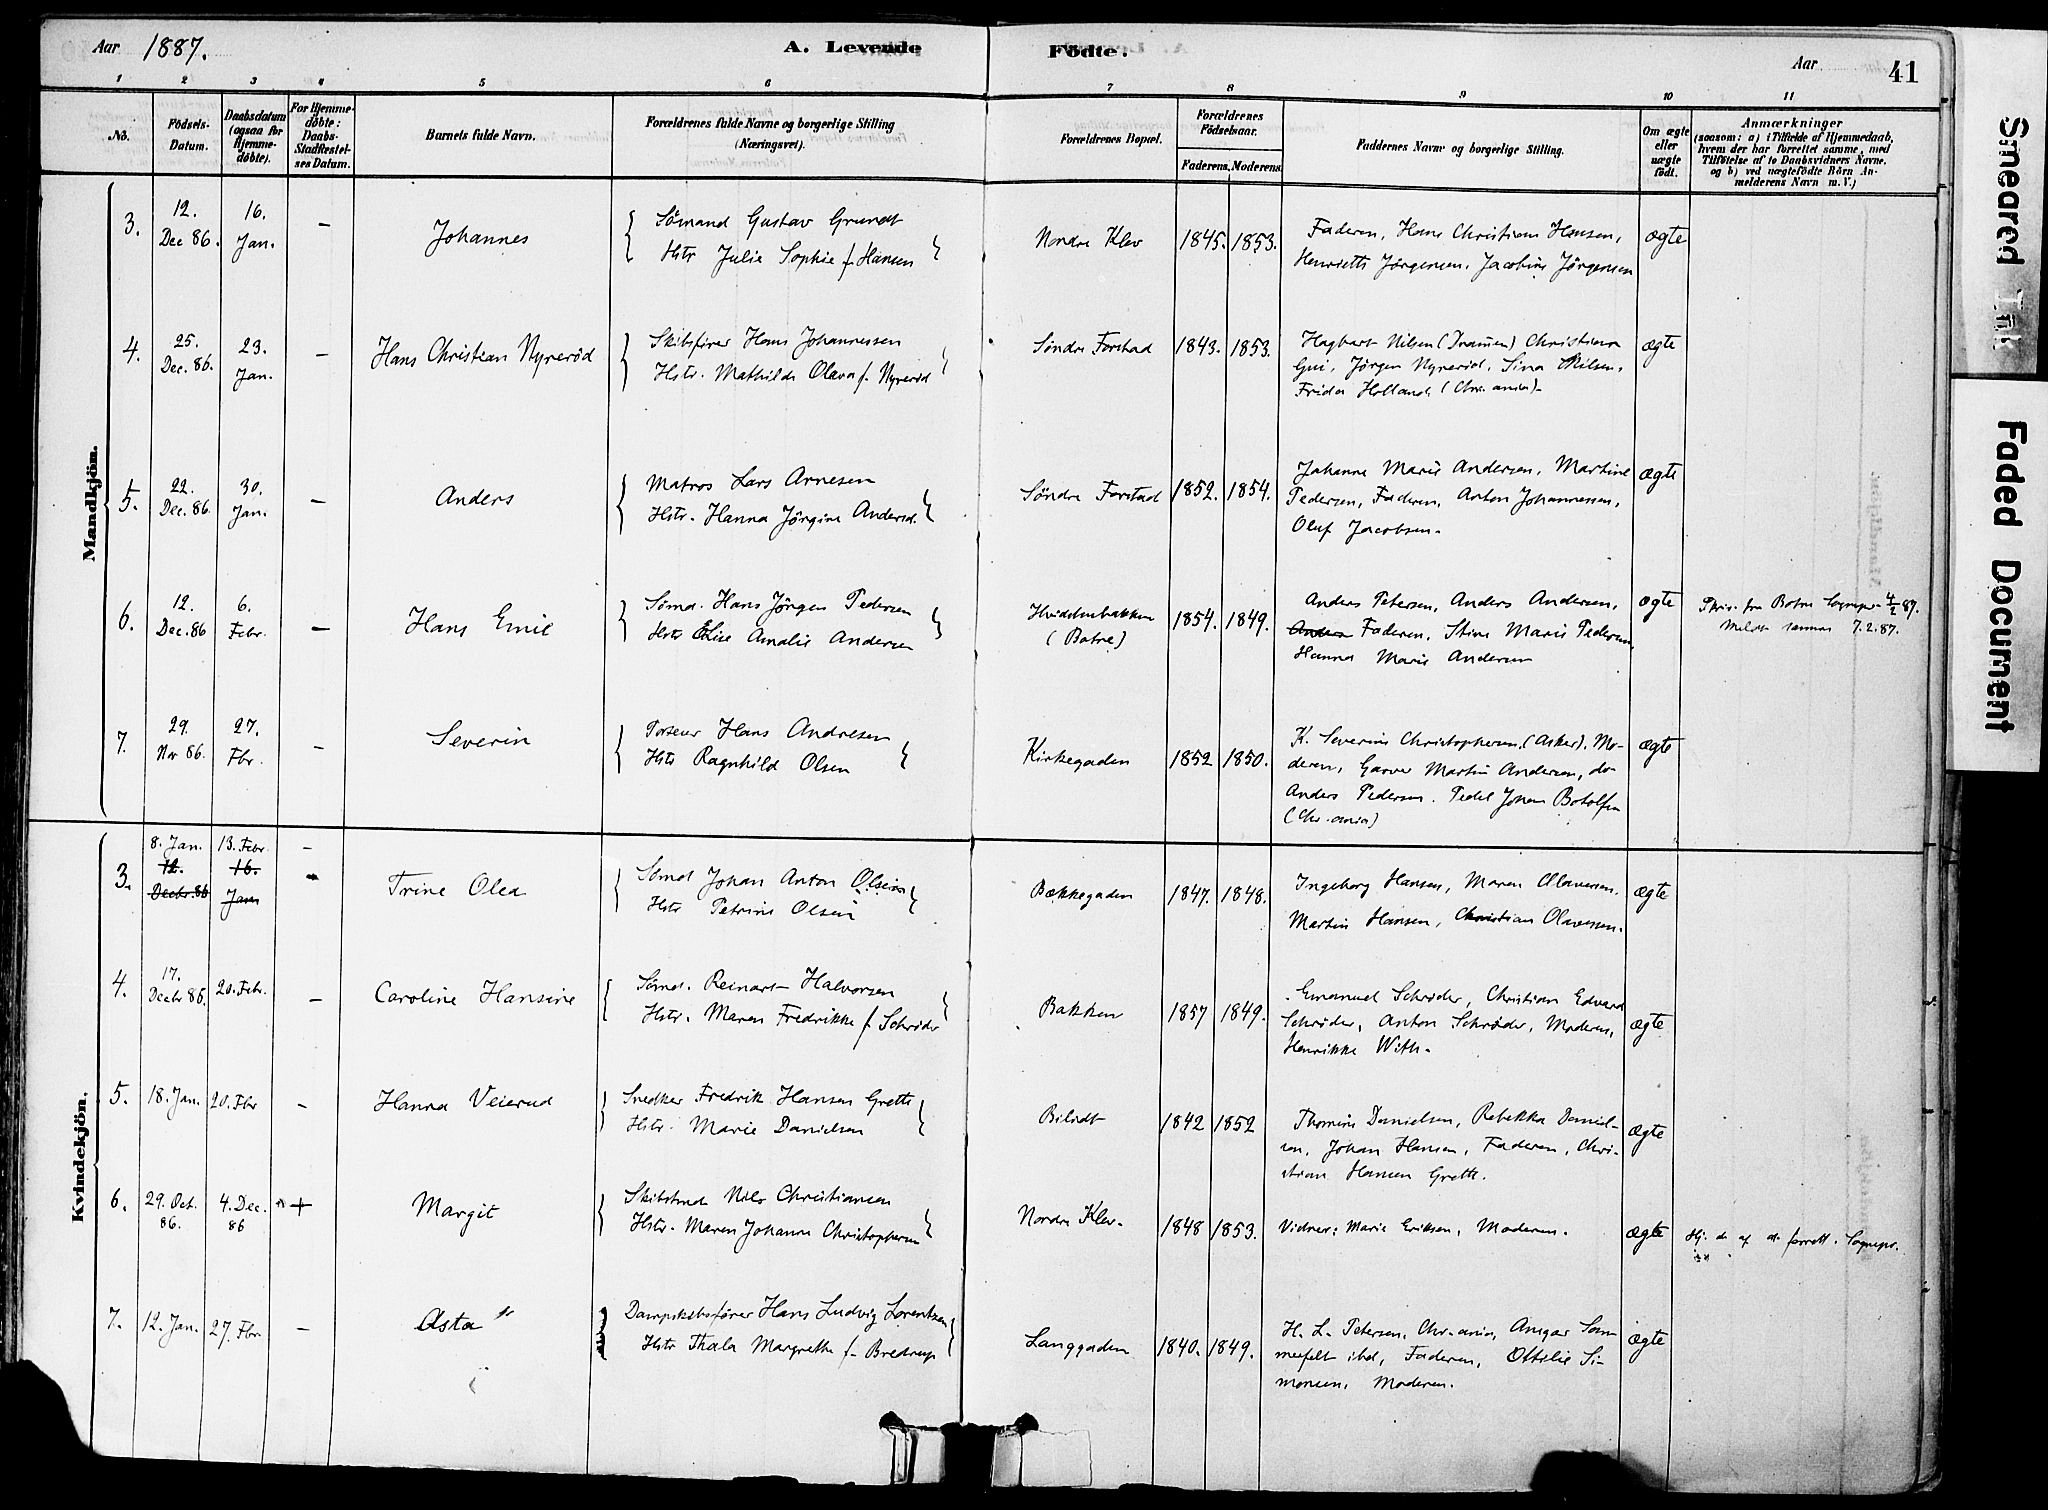 Aar 1887.
A. Levende Födte.
Aar
41
1 2 3 4 5 6 7 8 9 10 11
No.
Födsels-Datum.
Daabsdatum (ogsaa for Hjemme-döbte).
For Hjemme-döbte: Daabs-Stadfæstel-ses Datum.
Barnets fulde Navn.
Forældrenes fulde Navne og borgerlige Stilling (Næringsvei).
Forældrenes Bopæl.
Forældrenes Födselsaar.
Faderens. Moderens.
Faddernes Navne og borgerlige Stilling.
Om ægte eller uægte födt.
Anmærkninger
(saasom: a) i Tilfælde af Hjemmedaab,
hvem der har forrettet samme, med
Tilföielse af to Daabsvidners Navne.
og b) ved uægtefödte Börn An-
melderens Navn m. V.)
Mandkjön.
3. 12. Dec 86. 16. Jan. – Johannes
Sømand Gustav Grundt
Hstr Julie Sophie f. Hansen
Nordre Klev 1845. 1853.
Faderen, Hans Christian Hansen,
Henriette Jørgensen, Jacobine Jørgensen
ægte
4. 25. Dec. 86. 23. Jan. – Hans Christian Nyrerød
Skibsfører Hans Johannessen
Hstr. Mathilde Olava f. Nyrerød
Søndre Forstad 1843. 1853.
Hagbart Nilsen (Drammen) Christiana
Gui, Jørgen Nyrerød, Sina Nilsen,
Frida Holland (Chr.ania)-
ægte
5. 22. Dec. 86. 30. Jan. – Anders
Matros Lars Arnesen
Hstr. Hanna Jørgine Andersd.
Søndre Forstad 1852. 1854.
Johanne Marie Andersen, Martine
Pedersen, Faderen, Anton Johannessen,
Oluf Jacobsen.
ægte
6. 12. Dec. 86 6. Febr. – Hans Emil
Sømd. Hans Jørgen Pedersen
Hstr Elise Amalie Andersen
Hvidstenbakken (Botne) 1854. 1849.
Anders Petersen, Anders Andersen,
Faderen, Stine Marie Pedersen,
Hanna Marie Andersen
ægte
fra Botne Sognepr. 4/2 87.
Meldt samme 7.2.87.
7. 29. Nov 86. 27. Fbr. – Severin
Hans Andresen
Hstr Ragnhild Olsen
Kirkegaden 1852 1850.
K. Severine Christophersen, (Asker), Mo-
deren, Garver Martin Andersen, do
Anders Pedersen. Pedel Johan Botolfsen
(Chr.ania)
ægte
Kvindekjön.
3. 8. Jan. 12. Decbr. 86 13. Febr. 16. Jan – Trine Olea
Sømd Johan Anton Olsen
Hstr Petrine Olsen
Bækkegaden 1847. 1848.
Ingeborg Hansen, Maren Olavesen.
Martin Hansen, Christian Olavessen.
ægte
4. 17. Decbr 86. 20. Febr. – Caroline Hansine
Sømd. Reinart Halvorsen
Hstr. Maren Fredrikke f. Schrøder
Bakken 1857 1849.
Emanuel Schrøder, Christian Edvard
Schrøder, Anton Schrøder, Moderen,
Henrikke With.
ægte
5. 18. Jan. 20. Fbr – Hanna Veierud
Snedker Fredrik Hansen Grette
Hstr. Marie Danielsen
Bilidt 1842 1852
Thomine Danielsen, Rebekka Daniel-
sen, Johan Hansen, Faderen, Chri-
stian Hansen Grette.
ægte
6. 29. Oct. 86. 4. Dec. 86 + Margit
Nils Christiansen
Hstr. Maren Johanne Christophersen
Nordre Klev. 1848 1853.
Vidner: Marie Eriksen, Moderen.
ægte
Hj. d. af forrett. Sognepr.
7. 12. Jan. 27. Fbr. – Asta
Dampskibsfører Hans Ludvig Lorentzen
Hstr Thala Margrethe f. Bredrup
Langgaden 1840. 1849.
H. L. Petersen, Chr.ania, Ansgar Som
merfelt ibd, Faderen, Ottilie Si-
monsen, Moderen.
ægte
Smeared Ink
Faded Document